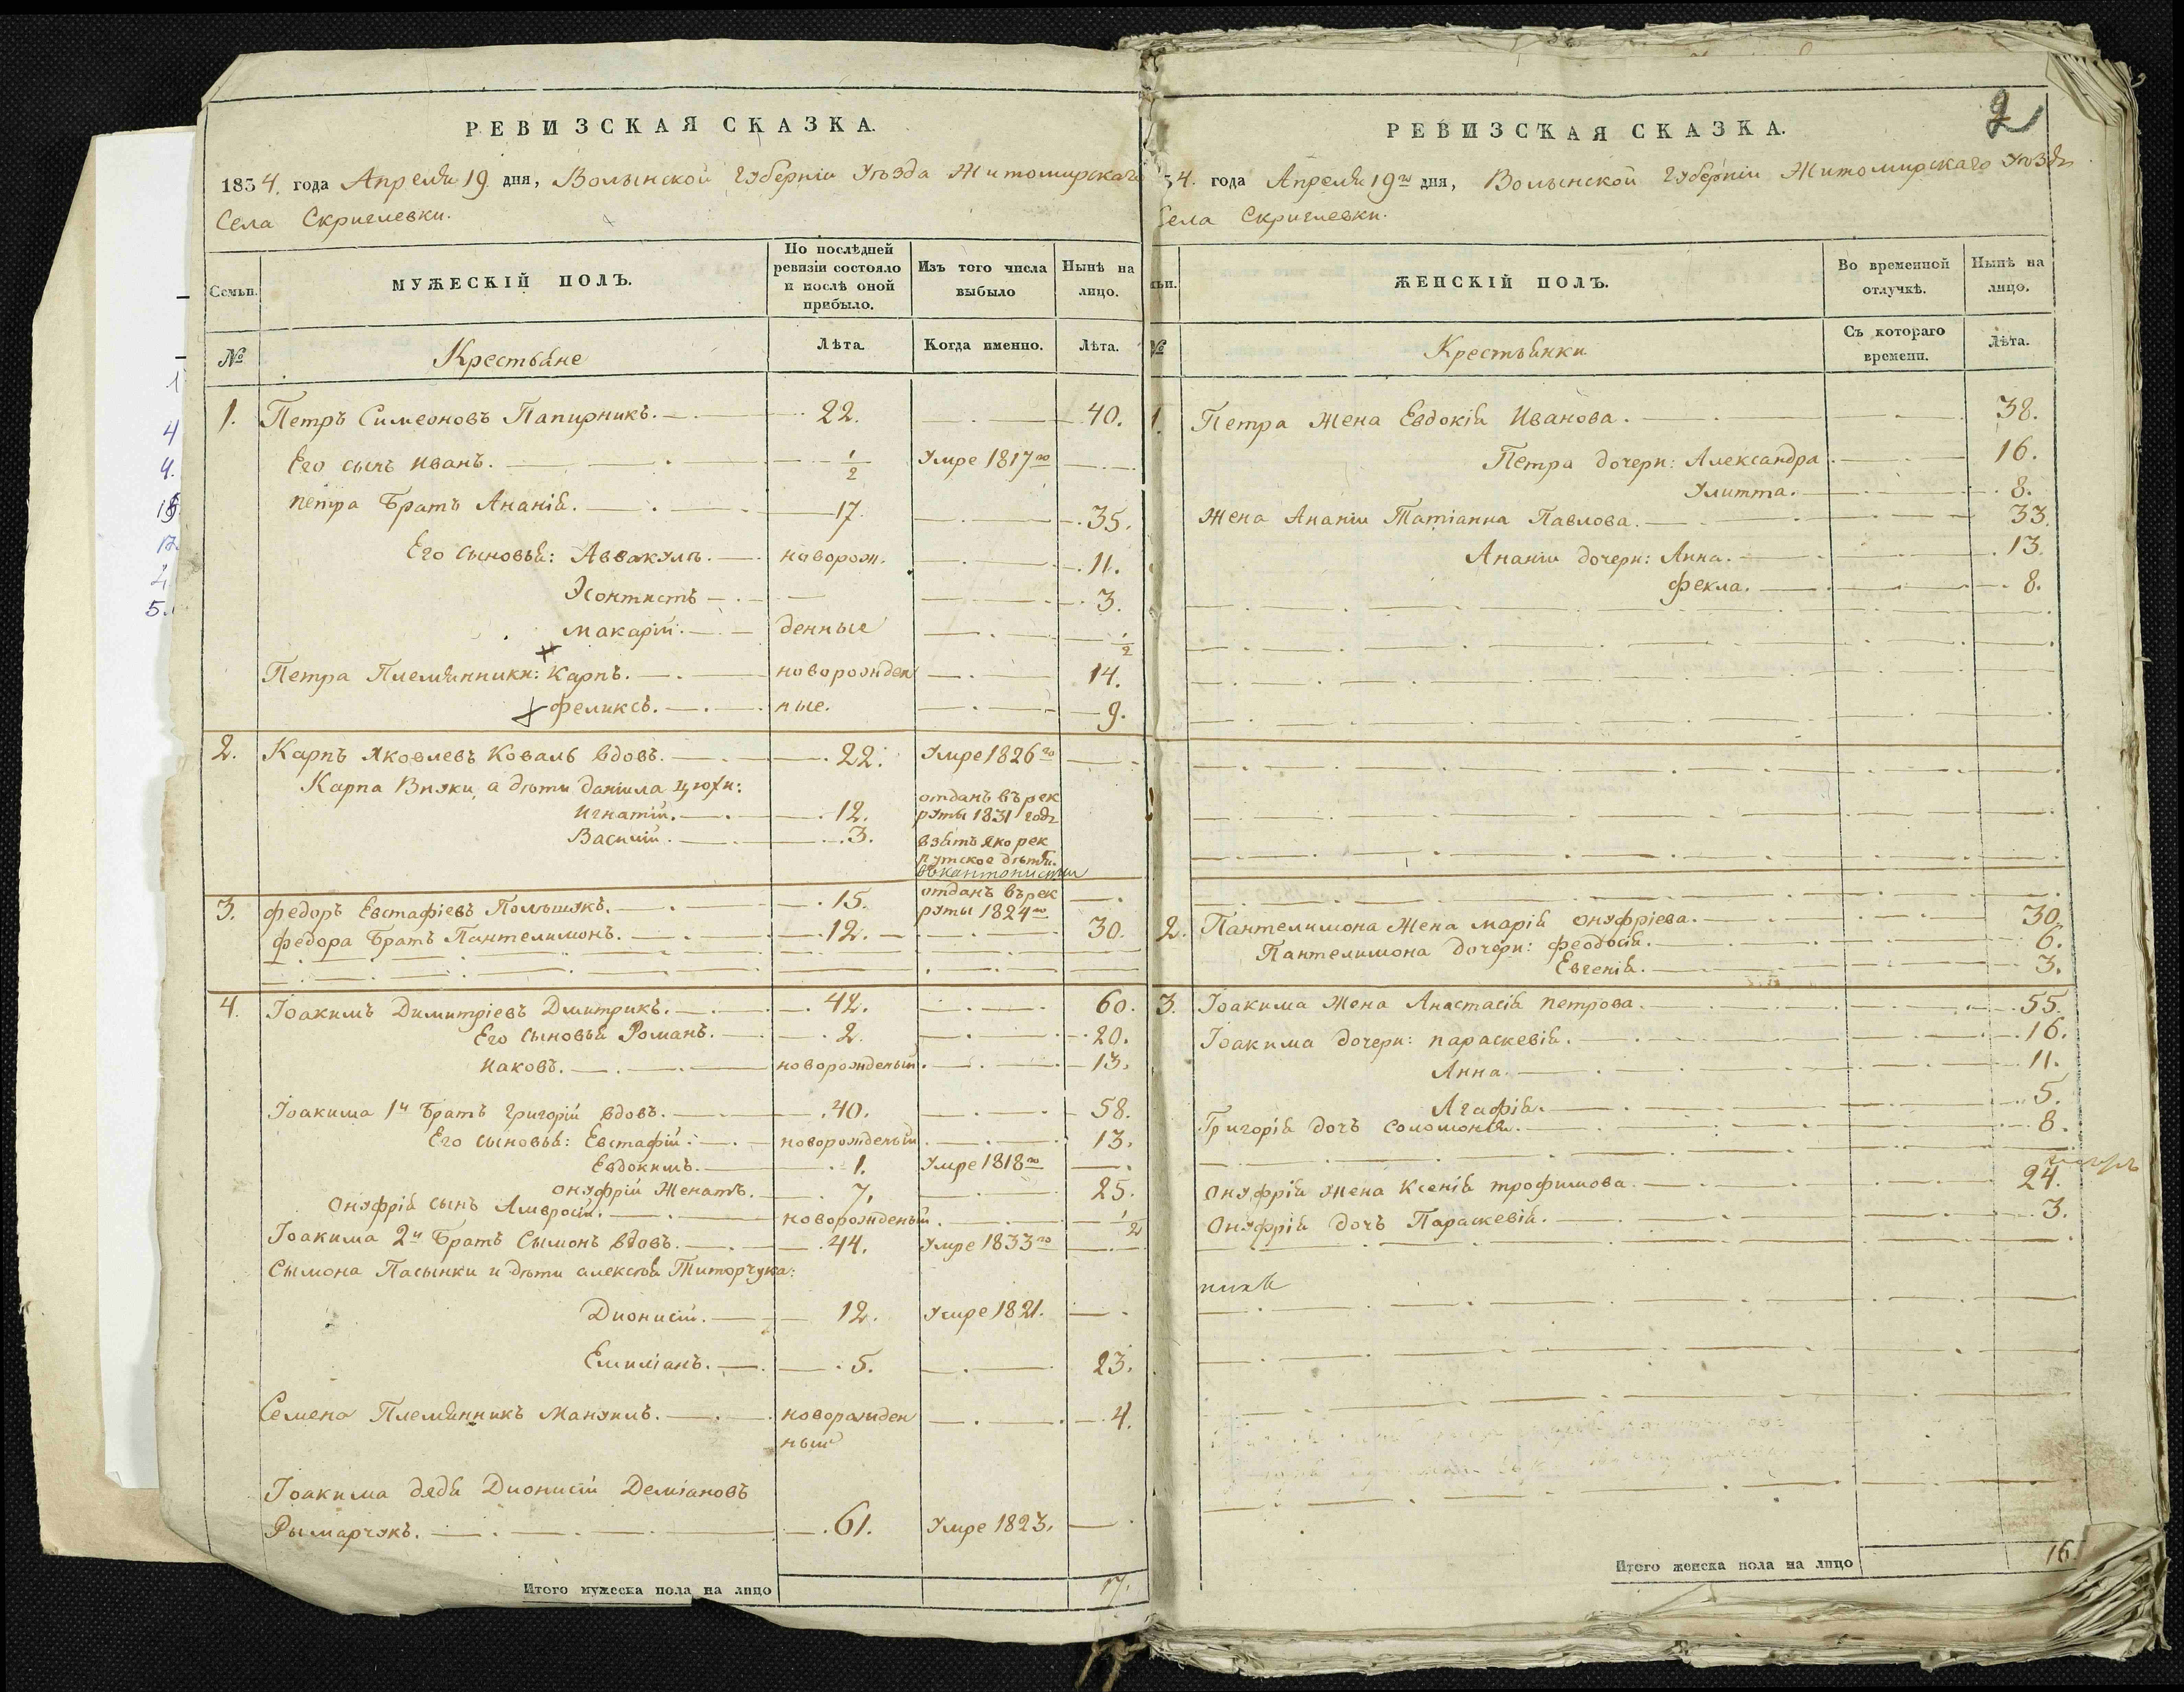 РЕВИЗСКАЯ СКАЗКА.
1834. года Апреля 19 дня, Волынской Губерніи Уѣзда Житомирскаго
Села Скриглевки.
Семьи.
МУЖЕСКІЙ ПОЛЪ.
По послѣдней ревизіи состояло и послѣ оной прибыло.
Изъ того числа выбыло
Нынѣ на лицо.
№
Крестьяне
Лѣта.
Когда именно.
Лѣта.
1. Петръ Симеоновъ Папирникъ. 22. 40.
Его сынъ Иванъ. 1/2 Умре 1817го
Петра Братъ Ананія. 17. 35.
Его сыновья: Аввакумъ. новорож. 11.
3.
Макарій. денные 1/2
Петра Племянники: Карпъ. новорожден 14.
Феликсъ. ные. 9.
2. Карпъ Яковлевъ Коваль вдовъ. 22. Умре 1826го
Карпа Внуки, а дѣти Даніила Цюхи:
Игнатій. 12. отданъ въ рек
руты 1831 года
Василій. 3. взятъ яко рек
рутское дѣтя.
въ кантонисты
3. Федоръ Евстафіевъ Полѣшукъ. 15. отданъ въ рек
руты 1824го
Федора Братъ Пантелимонъ. 12. 30.
4. Іоакимъ Димитріевъ Дмитрикъ. 42. 60.
Его сыновья Романъ. 2. 20.
Иаковъ. новорожденый. 13.
Іоакима 1й Братъ Григорій вдовъ. 40. 58.
Его сыновья: Евстафій. новорожденый. 13.
Евдокимъ. 1. Умре 1818го
Онуфрій Женатъ. 7. 25.
Онуфрія сынъ Амвросій. новорожденый. 1/2
Іоакима 2й Братъ Сымонъ вдовъ. 44. Умре 1833го
Сымона Пасынки и дѣти Алексѣя Титорчука:
Дионисій. 12. Умре 1821.
Емиліанъ. 5. 23.
Семена Племянникъ Мануилъ. новоражден 4.
ный
Іоакима дядя Дионисій Деміановъ
Рымарчукъ. 61. Умре 1823.
Итого мужеска пола на лицо 17.
2
РЕВИЗСКАЯ СКАЗКА.
34. года Апреля 19го дня, Волынской Губерніи Житомирскаго Уѣзда
Села Скриглевки.
ЖЕНСКІЙ ПОЛЪ.
Во временной отлучкѣ.
Нынѣ на лицо.
№
Крестьянки
Съ котораго времени.
Лѣта.
1. Петра Жена Евдокія Иванова. 38.
Петра дочери: Александра. 16.
Улитта. 8.
Жена Ананіи Татіанна Павлова. 33.
Ананіи дочери: Анна. 13.
Фекла. 8.
2. Пантелимона Жена Марія Онуфріева. 30.
Пантелимона дочери: Феодосія. 6.
Евгенія. 3.
3. Іоакима Жена Анастасія Петрова. 55.
Іоакима дочери: Параскевія. 16.
Анна. 11.
Агафія. 5.
Григорія дочъ Соломонія. 8.
Онуфрія Жена Ксенія Трофимова. 24.
Онуфрія дочъ Параскевія. 3.
Итого женска пола на лицо 16.